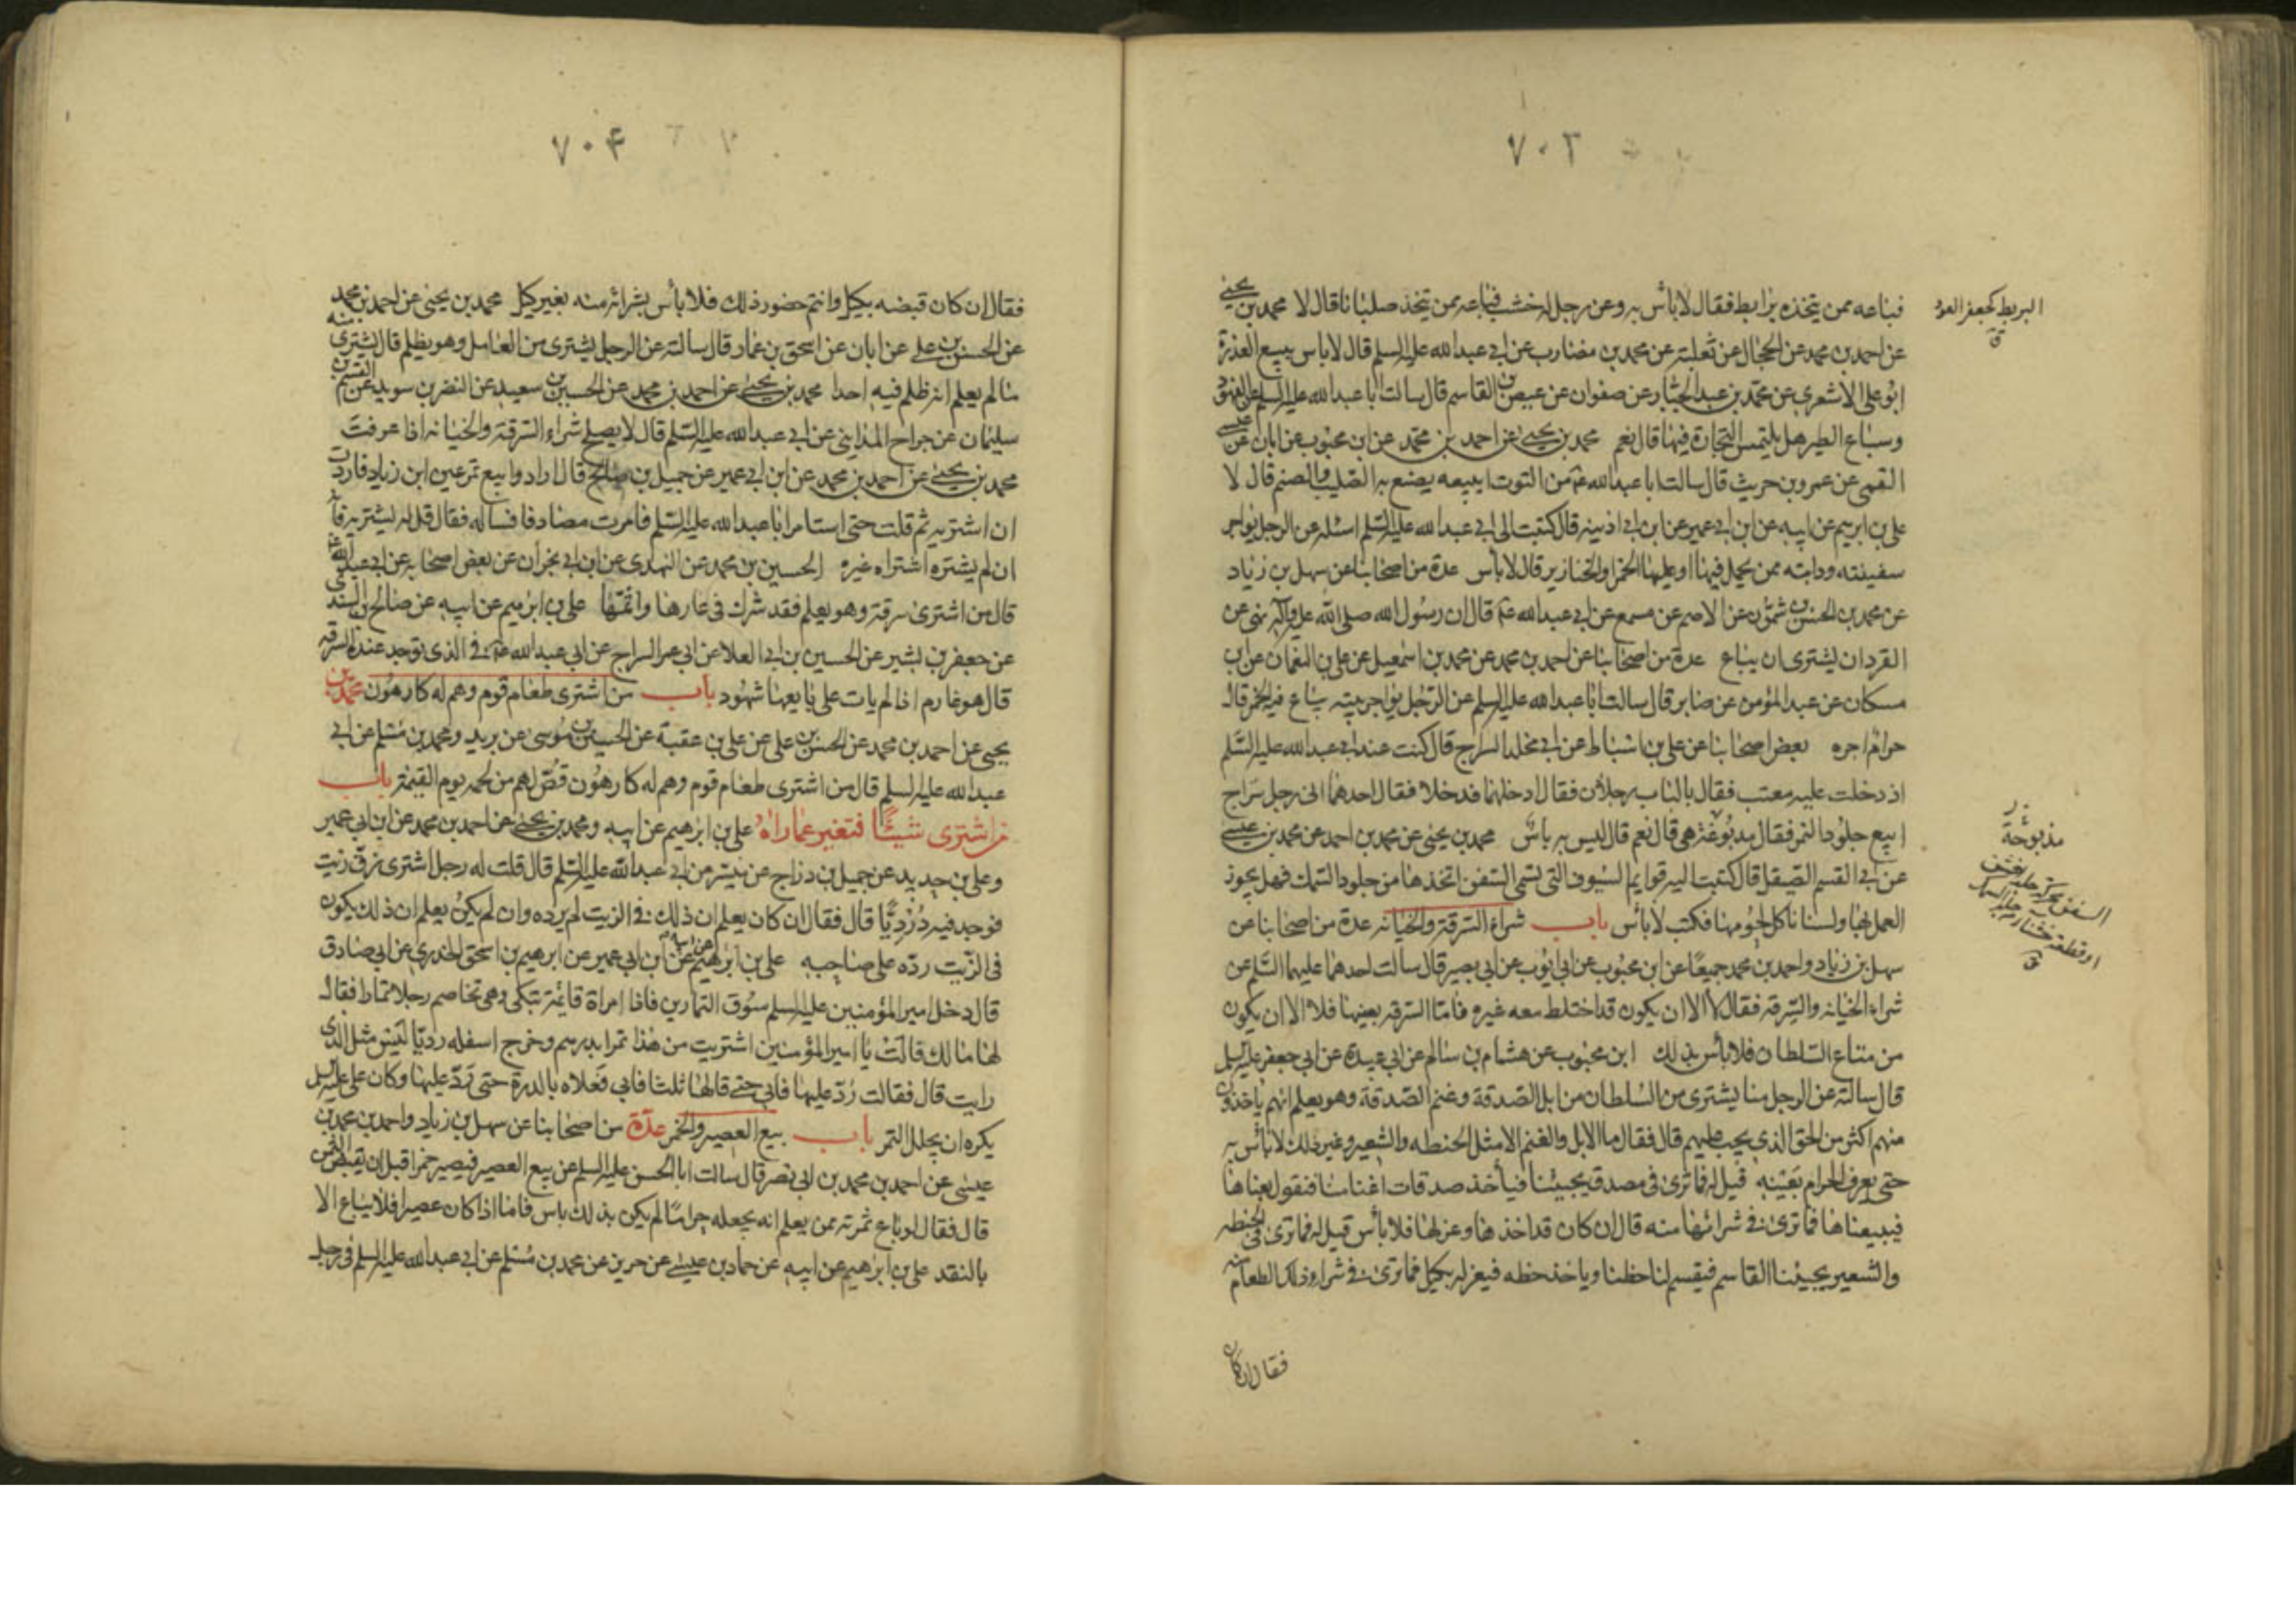 ٧٠٣
فباعه ممن يتخذه برابط فقال لا بأس به وعن رجل له خشب فباعه ممن يتخذ صلبانا قال لا محمد بن يحيى
عن احمد بن محمد عن الحجال عن ثعلبة عن محمد بن مضارب عن ابي عبد الله عليه السلم قال لا باس ببيع العذرة
ابو علي الاشعري عن محمد بن عبد الجبار عن صفوان عن عيص بن القاسم قال سالت ابا عبد الله عليه السلم عن الفهود
وسباع الطير هل يلتمس التجارة فيها قال نعم محمد بن يحيى عن احمد بن محمد عن ابن محبوب عن ابان عن عيسى
القمى عن عمرو بن حريث قال سالت ابا عبد الله ع عن التوت ابيعه يصنع به الصليب والصنم قال لا
علي بن ابرهيم عن ابيه عن ابن ابي عمير عن ابن اذينة قال كتبت الى ابي عبد الله عليه السلم اسئله عن الرجل يواجر
سفينته ودابته ممن يحمل فيها او عليها الخمر او الخنازير قال لا بأس عدة من اصحابنا عن سهل بن زياد
عن محمد بن الحسن بن شمون عن الاصم عن مسمع عن ابي عبد الله ع قال ان رسول الله صلى الله عليه وآله نهى عن
القردان يشترى ان يباع عدة من اصحابنا عن احمد بن محمد عن محمد بن اسمعيل عن علي بن النعمان عن ابن
مسكان عن عبد المؤمن عن صابر قال سالت ابا عبد الله عليه السلم عن الرجل يواجر بيته يباع فيه الخمر قال
حرام اجره بعض اصحابنا عن علي بن اسباط عن ابي مخلد السراج قال كنت عند ابي عبد الله عليه السلم
اذ دخلت عليه معتب فقال بالباب رجلان فقال ادخلهما فدخلا فقال احدهما انى رجل سراج
ابيع جلود النمر فقال مدبوغة هي قال نعم قال ليس به باس محمد بن يحيى عن محمد بن احمد عن محمد بن عيسى
عن ابي القسم الصيقل قال كتبت اليه قوايم السيوف التى تسمى السفن اتخذها من جلود السمك فهل يجوز
العمل بها ولسنا ناكل لحومها فكتب لا بأس باب شراء السرقة والخيانة عدة من اصحابنا عن
سهل بن زياد واحمد بن محمد جميعا عن ابن محبوب عن ابي ايوب عن ابي بصير قال سالت احدهما عليهما السلم عن
شراء الخيانة والسرقة فقال لا الا ان يكون قد اختلط معه غيره فاما السرقة بعينها فلا الا ان يكون
من متاع السلطان فلا بأس بذلك ابن محبوب عن هشام بن سالم عن ابي عبيدة عن ابي جعفر عليه السلم
قال سالته عن الرجل منا يشترى من السلطان من ابل الصدقة وغنم الصدقة وهو يعلم انهم ياخذون
منهم اكثر من الحق الذى يجب عليهم قال فقال ما الابل والغنم الا مثل الحنطه والشعير وغير ذلك لا بأس به
حتى يعرف الحرام بعينه قيل له فما ترى فى مصدق يجيئنا فيأخذ صدقات اغنامنا فنقول بعناها
فيبيعناها فما ترى في شرائها منه قال ان كان قد اخذها وعزلها فلا بأس قيل له فما ترى فى الحنطه
والشعير يجيئنا القاسم فيقسم لنا حظنا وياخذ حظه فيعزله بكيل فما ترى في شراء ذلك الطعام منه
فقال ان كان
البربط كجعفر العود
ق
مذبوحة
السفن
ق
٧٠۴
فقال ان كان قبضه بكيل وانتم حضور ذلك فلا بأس بشرائه منه بغير كيل محمد بن يحيى عن احمد بن محمد
عن الحسن بن علي عن ابان عن اسحق بن عمار قال سالته عن الرجل يشترى من العامل وهو يظلم قال يشترى منه
ما لم يعلم انه ظلم فيه احدا محمد بن يحيى عن احمد بن محمد عن الحسين بن سعيد عن النضر بن سويد عن القسم بن
سليمان عن جراح المدايني عن ابي عبد الله عليه السلم قال لا يصلح شراء السرقة والخيانة اذا عرفت
محمد بن يحيى عن احمد بن محمد عن ابن ابي عمير عن جميل بن صالح قال ارادوا بيع تمر عين ابن زياد فاردت
ان اشتريه ثم قلت حتى استامر ابا عبد الله عليه السلم فامرت مصادفا فساله فقال قل له يشتريه فانه
ان لم يشتره اشتراه غيره الحسين بن محمد عن النهدى عن ابن ابي نجران عن بعض اصحابه عن ابي عبد الله ع
قال من اشترى سرقة وهو يعلم فقد شرك فى عارها واثمها علي بن ابرهيم عن ابيه عن صالح بن السندى
عن جعفر بن بشير عن الحسين بن ابي العلا عن ابي عمر السراج عن ابي عبد الله ع في الذى توجد عنده السرقة
قال هو غارم اذا لم يات على بايعها شهود باب من اشترى طعام قوم وهم له كارهون محمد بن
يحيى عن احمد بن محمد عن الحسن بن على عن على بن عقبة عن الحسين بن موسى عن بريد ومحمد بن مسلم عن ابي
عبد الله عليه السلم قال من اشترى طعام قوم وهم له كارهون قص لهم من لحمه يوم القيمة باب
من اشترى شيئا فتغير عما راه علي بن ابرهيم عن ابيه ومحمد بن يحيى عن احمد بن محمد عن ابن ابي عمير
وعلي بن حديد عن جميل بن دراج عن ميسر عن ابي عبد الله عليه السلم قال قلت له رجل اشترى زق زيت
فوجد فيه درديا قال فقال ان كان يعلم ان ذلك في الزيت لم يرده وان لم يكن يعلم ان ذلك يكون
فى الزيت رده على صاحبه علي بن ابرهيم عن ابيه عن ابن ابي عمير عن ابرهيم بن اسحق الخدرى عن ابي صادق
قال دخل امير المؤمنين عليه السلم سوق التمارين فاذا امراة قائمة تبكى وهى تخاصم رجلا تمارا فقال
لها مالك قالت يا امير المؤمنين اشتريت من هذا تمرا بدرهم وخرج اسفله رديا ليس مثل الذى
رايت قال فقالت رد عليها فابى حتى قالها ثلثا فابى فعلاه بالدرة حتى رد عليها وكان علي عليه السلم
يكره ان يجلل التمر باب بيع العصير والخمر عدة من اصحابنا عن سهل بن زياد واحمد بن محمد بن
عيسى عن احمد بن محمد بن ابي نصر قال سالت ابا الحسن عليه السلم عن بيع العصير فيصير خمرا قبل ان يقبض الثمن
قال فقال لو باع ثمرته ممن يعلم انه يجعله حراما لم يكن بذلك باس فاما اذا كان عصيرا فلا يباع الا
بالنقد علي بن ابرهيم عن ابيه عن حماد بن عيسى عن حريز عن محمد بن مسلم عن ابي عبد الله عليه السلم فى رجل